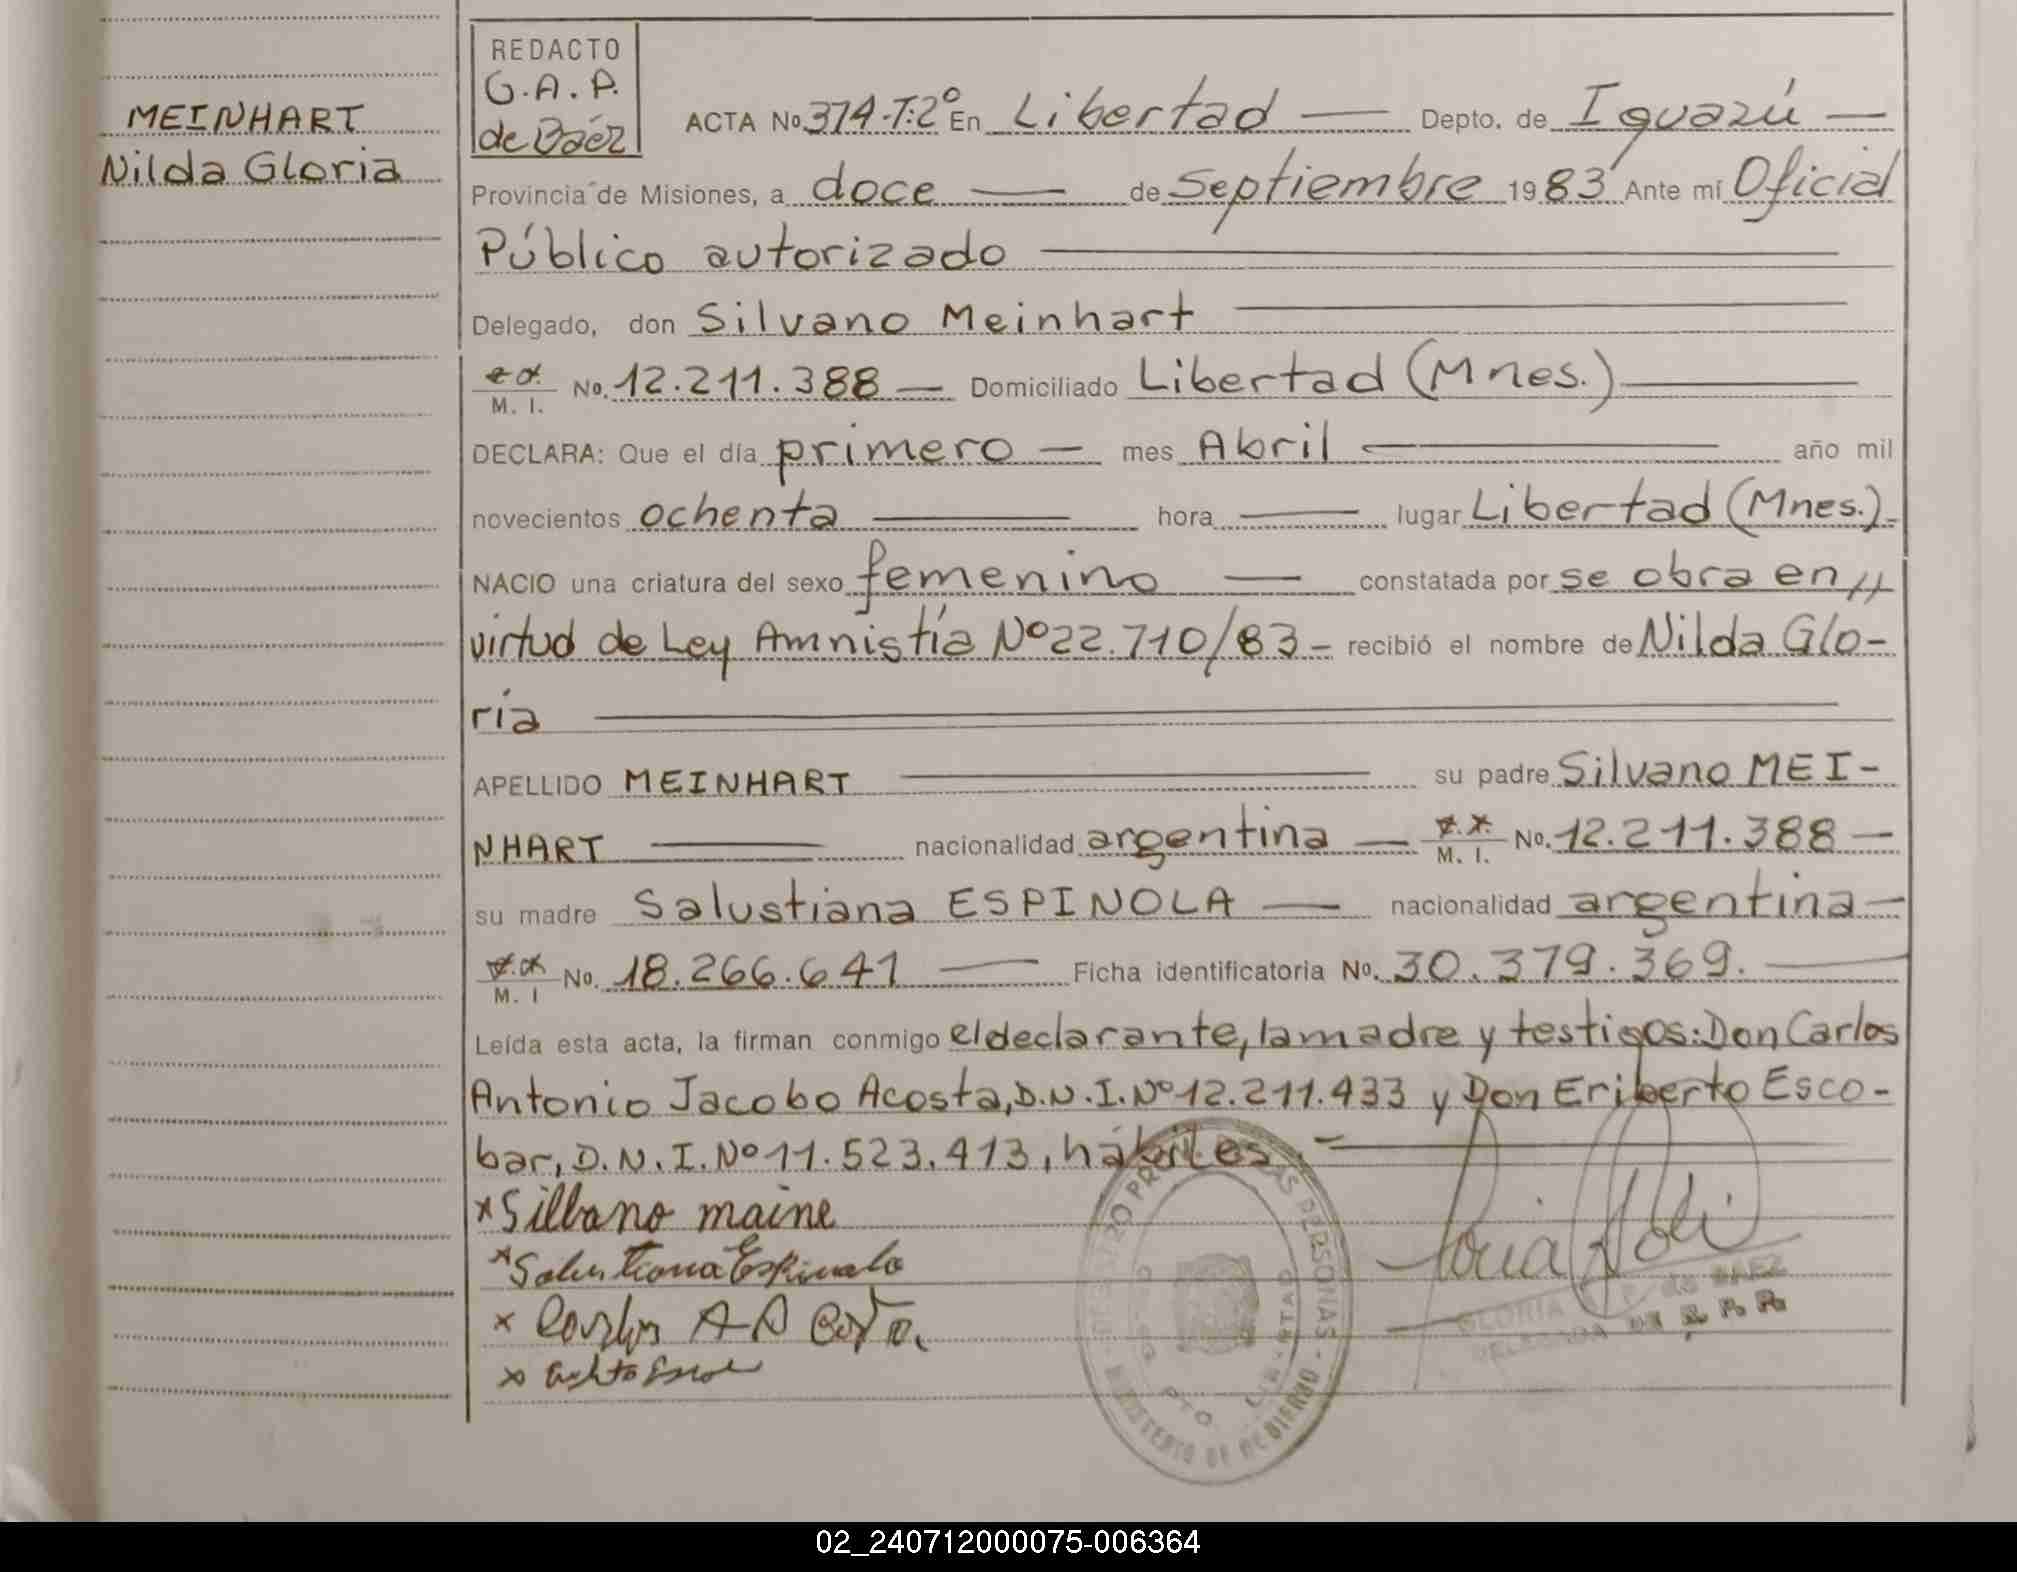 MEINHART
Nilda Gloria
REDACTO
G.A.P.
de Báez
ACTA No. 374-T:2º En Libertad — Depto. de Iguazú —
Provincia de Misiones, a doce — de Septiembre 1983 Ante mí Oficial
Público autorizado —
Delegado, don Silvano Meinhart —
M. I. No. 12.211.388 — Domiciliado Libertad (Mnes.) —
DECLARA: Que el día primero — mes Abril — año mil
novecientos ochenta — hora — lugar Libertad (Mnes.) -
NACIO una criatura del sexo femenino — constatada por se obra en //
virtud de Ley Amnistía Nº 22.710/83 - recibió el nombre de Nilda Glo-
ria —
APELLIDO MEINHART — su padre Silvano MEI-
NHART — nacionalidad argentina — M. I. No. 12.211.388 —
su madre Salustiana ESPINOLA — nacionalidad argentina —
M. I No. 18.266.641 — Ficha identificatoria No. 30.379.369. —
Leída esta acta, la firman conmigo el declarante, la madre y testigos: Don Carlos
Antonio Jacobo Acosta, D.N.I. Nº 12.211.433 y Don Eriberto Esco-
bar, D.N.I. Nº 11.523.413, hábiles. —
x Sillbano maine
x Salustiana Espinola
x Carlos A A Costa.
x
GLORIA de BAEZ
DELEGADA
PERSONAS
MINISTERIO DE GOBIERNO
02_240712000075-006364